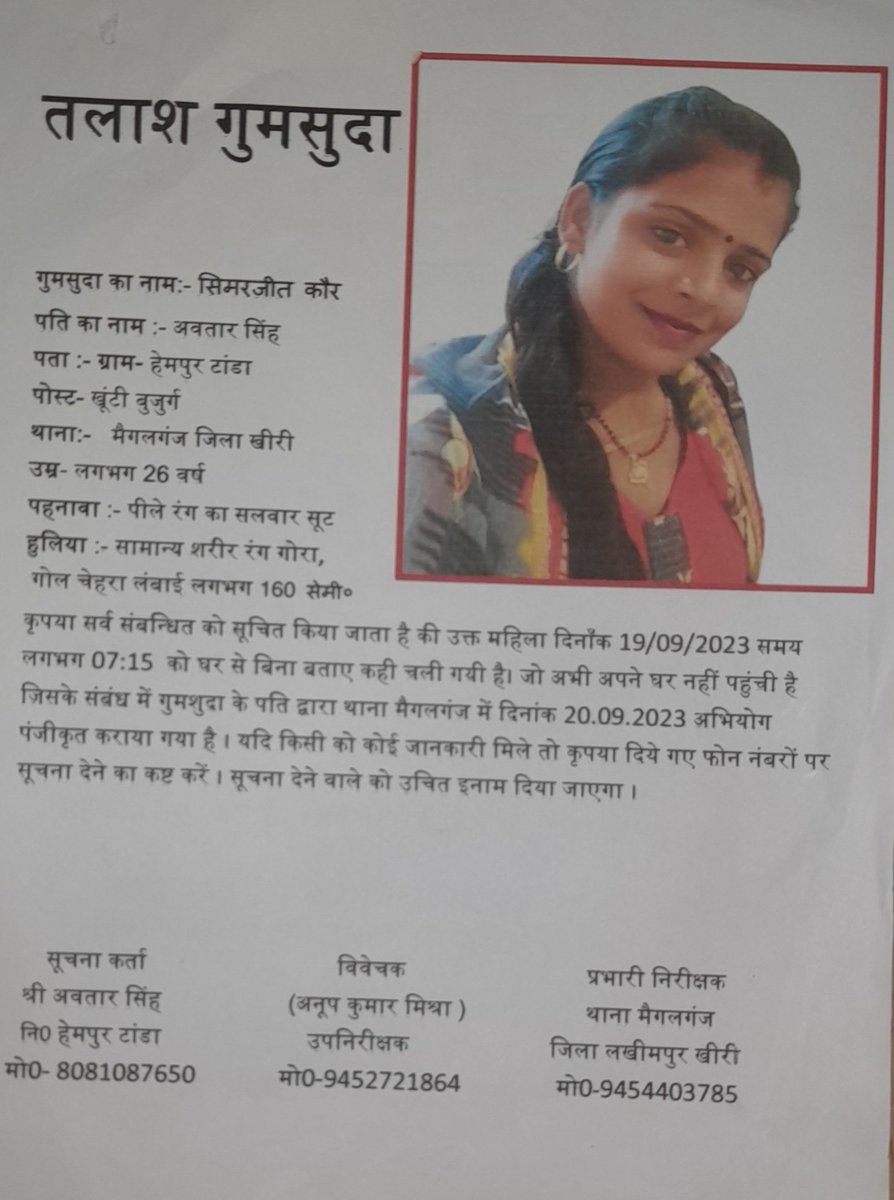 तलाश गुमसुदा
गुमसुदा का नाम:- सिमरजीत कौर
पति का नाम :- अवतार सिंह
पता :- ग्राम- हेमपुर टांडा
पोस्ट- खूंटी बुजुर्ग
थाना:- मैगलगंज जिला खीरी
उम्र- लगभग 26 वर्ष
पहनावा :- पीले रंग का सलवार सूट
हुलिया :- सामान्य शरीर रंग गोरा,
गोल चेहरा लंबाई लगभग 160 सेमी०
कृपया सर्व संबन्धित को सूचित किया जाता है की उक्त महिला दिनाँक 19/09/2023 समय
लगभग 07:15 को घर से बिना बताए कही चली गयी है। जो अभी अपने घर नहीं पहुंची है
जिसके संबंध में गुमशुदा के पति द्वारा थाना मैगलगंज में दिनांक 20.09.2023 अभियोग
पंजीकृत कराया गया है । यदि किसी को कोई जानकारी मिले तो कृपया दिये गए फोन नंबरों पर
सूचना देने का कष्ट करें । सूचना देने वाले को उचित इनाम दिया जाएगा ।
सूचना कर्ता
श्री अवतार सिंह
नि0 हेमपुर टांडा
मो0- 8081087650
विवेचक
(अनूप कुमार मिश्रा )
उपनिरीक्षक
मो0-9452721864
प्रभारी निरीक्षक
थाना मैगलगंज
जिला लखीमपुर खीरी
मो0-9454403785